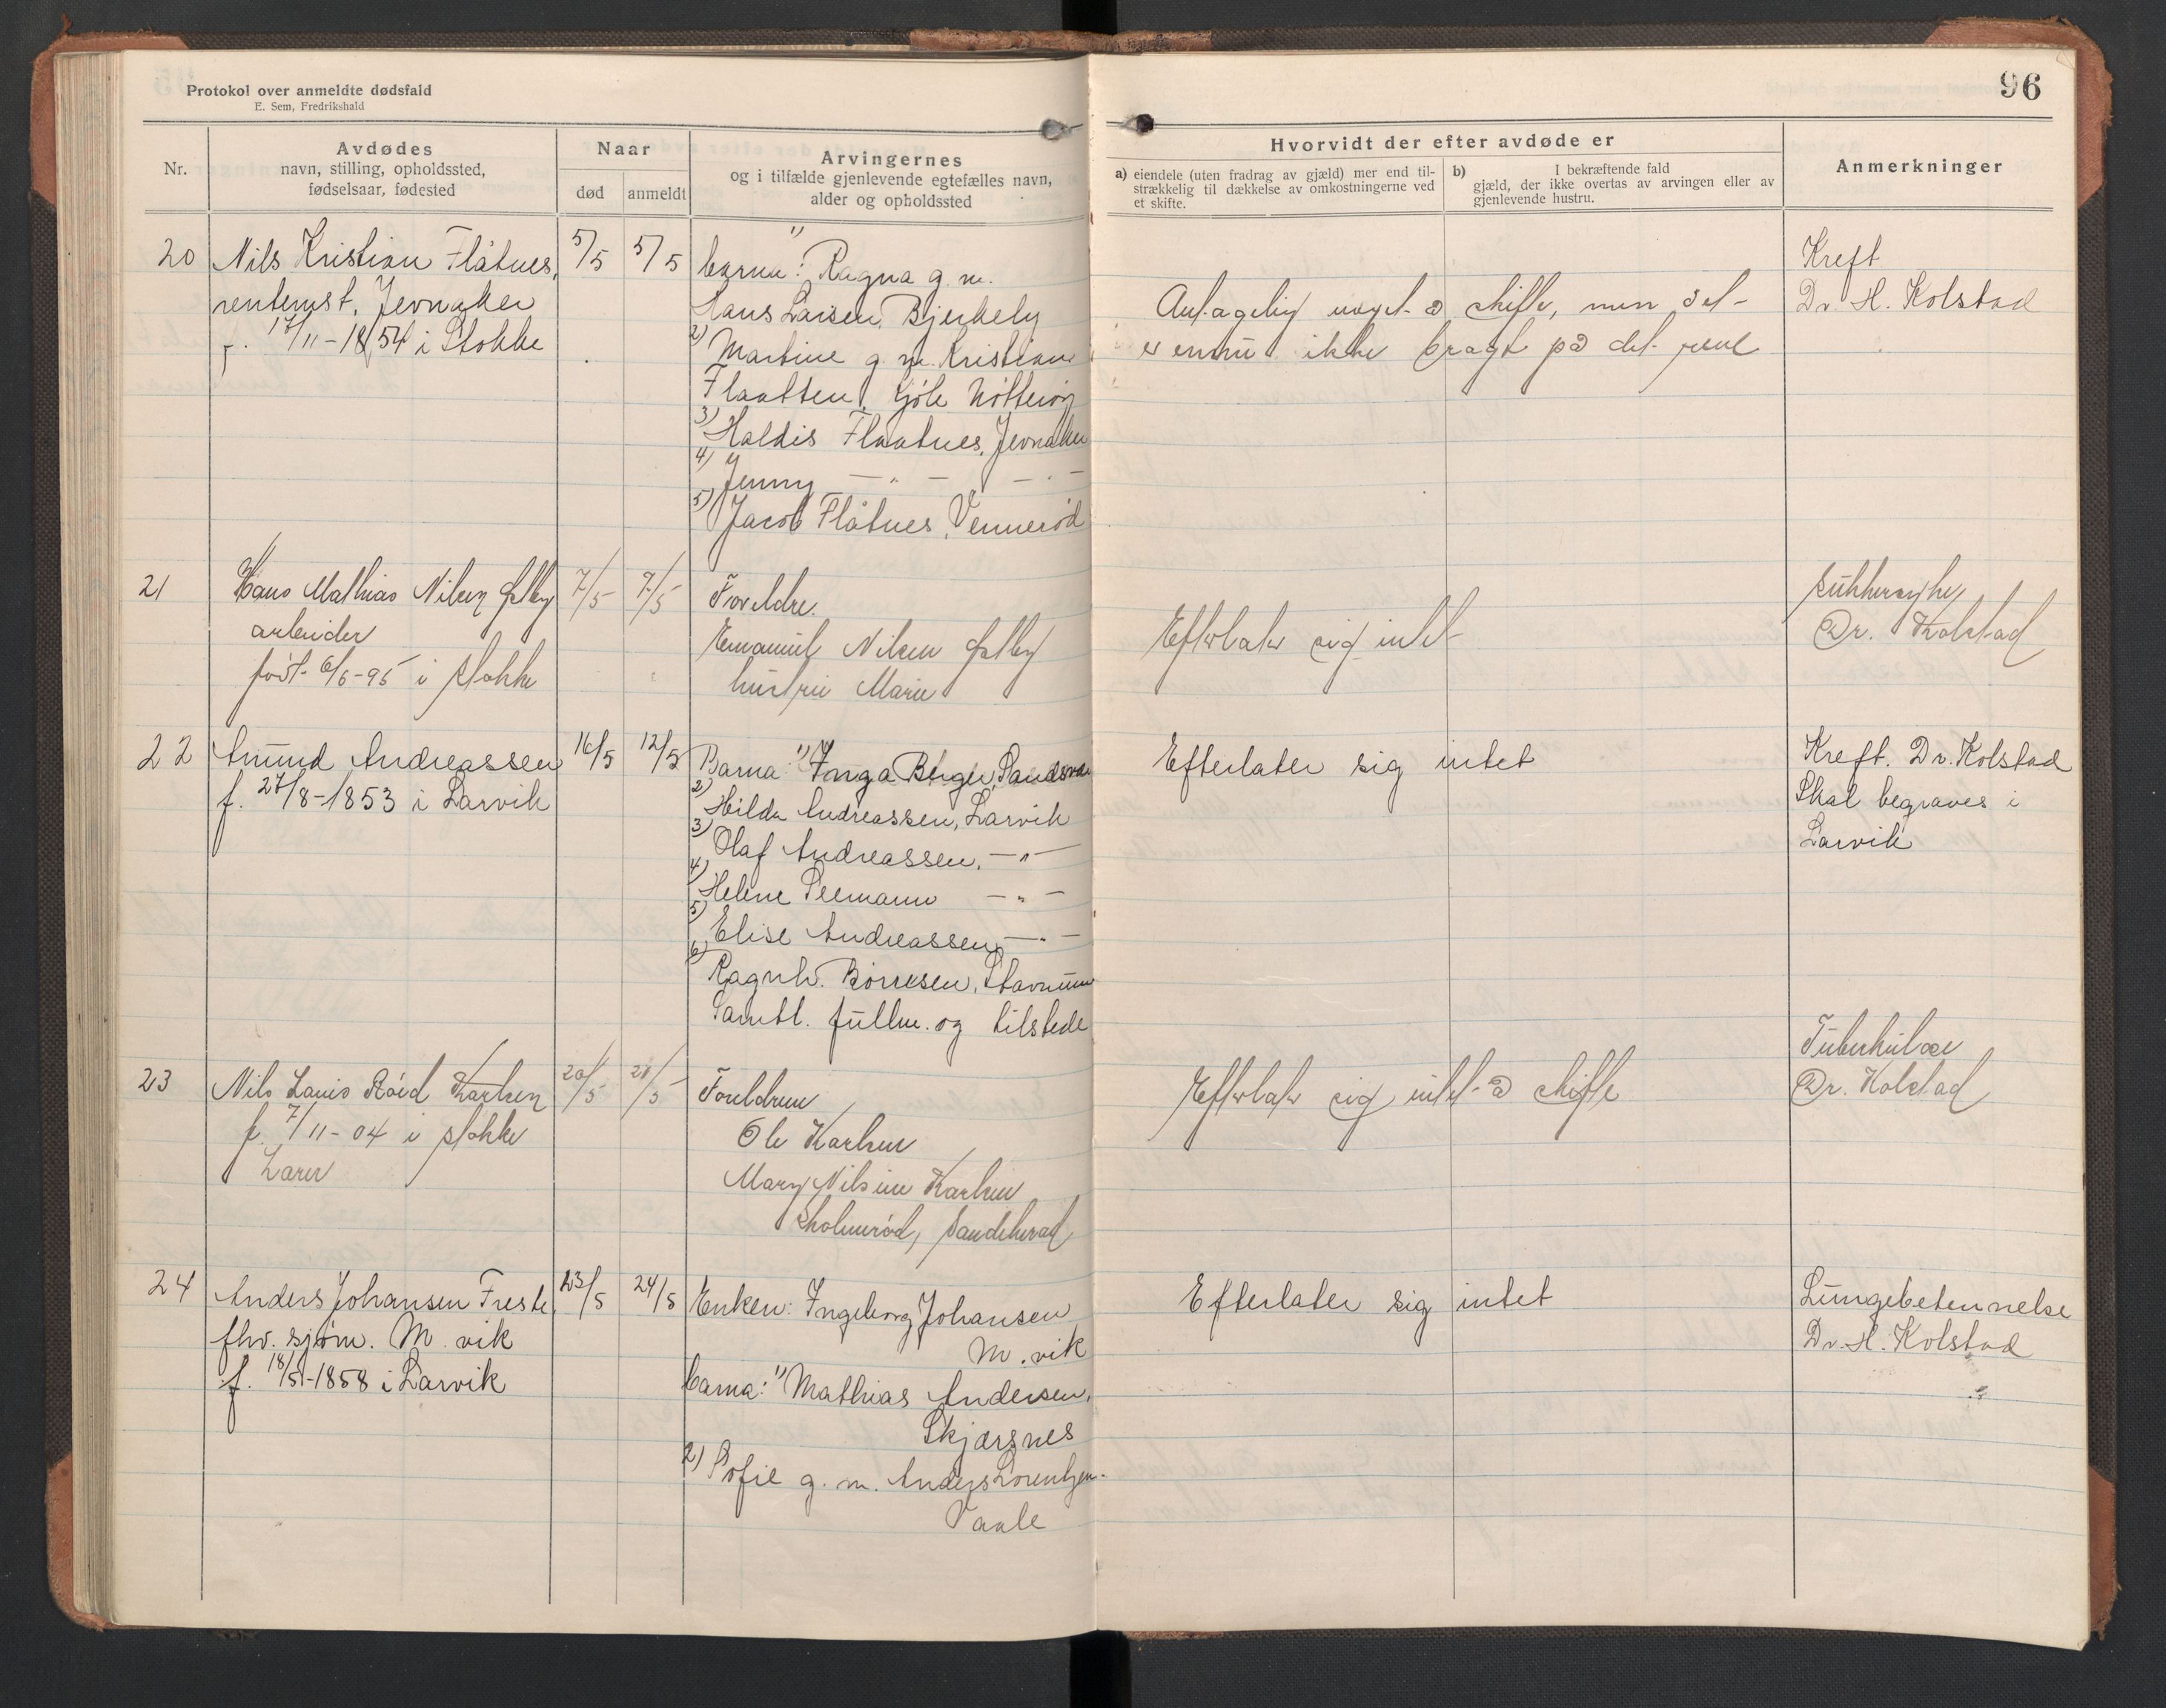 Protokol over anmeldte dødsfald
E. Sem, Fredrikshald
96
Nr.
Avdødes
navn, stilling, opholdssted,
fødselsaar, fødested
Naar
død
anmeldt
Arvingernes
og i tilfælde gjenlevende egtefælles navn,
alder og opholdssted
Hvorvidt der efter avdøde er
a) eiendele (uten fradrag av gjæld) mer end til-
strækkelig til dækkelse av omkostningerne ved
et skifte.
b) I bekræftende fald
gjæld, der ikke overtas av arvingen eller av
gjenlevende hustru.
Anmerkninger
20 Nils Kristian Flåtnes,
rentenist, Jevnaker
f. 17/11-1854 i Stokke
5/5 5/5
barna: 1) Ragna g. m.
Hans Larsen, Bjerkely
2) Martine g. m. Kristian
Flaatten, Kjøle Nøtterøy
3) Haldis Flaatnes, Jevnaker
4) Jenny — " — — " —
5) Jacob Flåtnes, Vennerød
Antagelig noget å skifte, men det
er ennu ikke bragt på det rene
Kreft
Dr. H. Kolstad
21 Hans Mathias Nilsen
arbeider
født 6/6-95 i Stokke
7/5 9/5
Foreldre.
Emanuel Nilsen
hustru Marie
Efterlater sig intet
sukkersyke
Dr. Kolstad
22 Amund Andreassen
f. 27/8-1853 i Larvik
16/5 12/5
Barna 1) Inga Berger,
2) Hilda Andreassen, Larvik
3) Olaf Andreassen, — " —
4) Helene — " —
5) Elise Andreassen — " —
6) Ragnh. Børresen, Stavnum
Samtl. fullm. og tilstede
Efterlater sig intet
Kreft. Dr. Kolstad
Skal begraves i
Larvik
23 Nils Louis Røed Karlsen
f. 7/11-04 i Stokke
Lærer
20/5 21/5
Foreldrene
Ole Karlsen
Mary Nilsine Karlsen
Skolmerød, Sandeherad
Efterlater sig intet å skifte
Tuberkulose
Dr. Kolstad
24 Anders Johansen Freste,
fhv. sjøm. M. vik
f. 18/5-1858 i Larvik
23/5 24/5
Enken: Ingeborg Johansen
M. vik
barna: 1) Mathias Andersen,
Skjærsnes
2) Sofie g. m. Anders Lorentzen
Vaale
Efterlater sig intet
Lungebetennelse
Dr. H. Kolstad